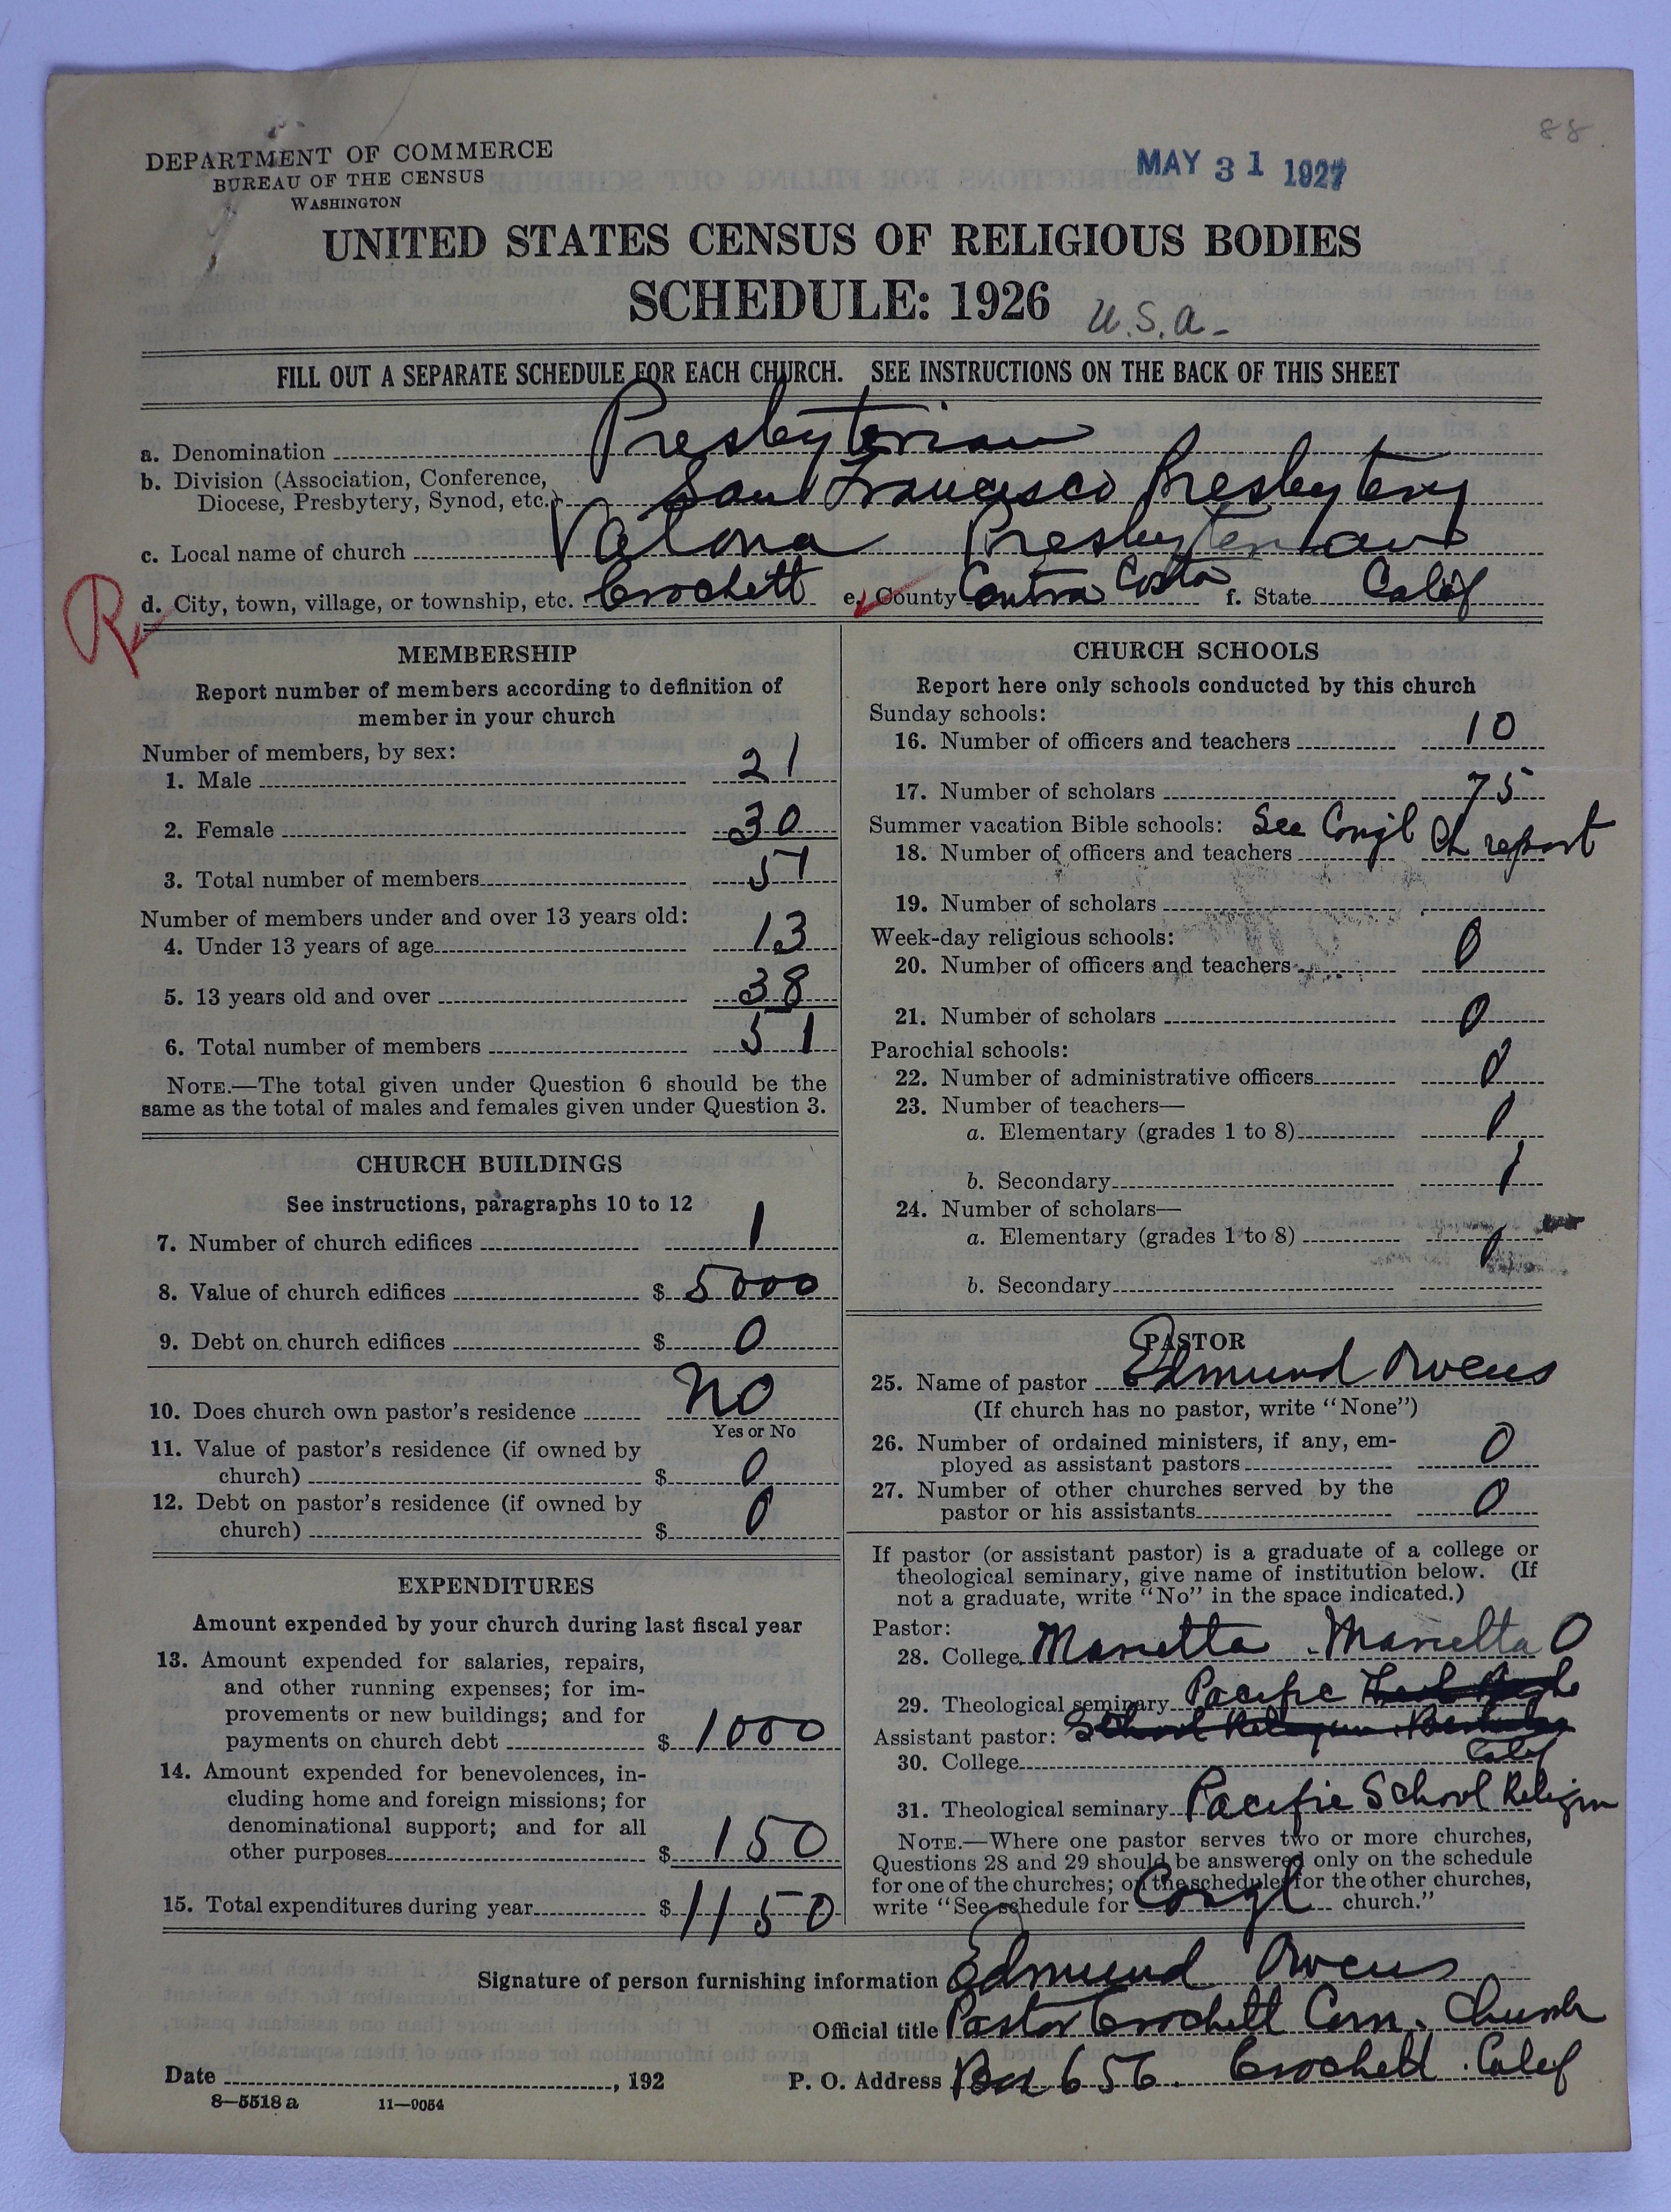 88
DEPARTMENT OF COMMERCE
BUREAU OF THE CENSUS
WASHINGTON
MAY 31 1927
UNITED STATES CENSUS OF RELIGIOUS BODIES
SCHEDULE: 1926 U.S.A.
FILL OUT A SEPARATE SCHEDULE FOR EACH CHURCH. SEE INSTRUCTIONS ON THE BACK OF THIS SHEET
a. Denomination Presbyterian
b. Division (Association, Conference, Diocese, Presbytery, Synod, etc.) San Francisco Presbytery
c. Local name of church Valona Presbyterian
R d. City, town, village, or township, etc. Crockett e. County Contra Costa f. State Calif
MEMBERSHIP
Report number of members according to definition of
member in your church
Number of members, by sex:
1. Male 21
2. Female 30
3. Total number of members 51
Number of members under and over 13 years old:
4. Under 13 years of age 13
5. 13 years old and over 38
6. Total number of members 51
NOTE.—The total given under Question 6 should be the
same as the total of males and females given under Question 3.
CHURCH BUILDINGS
See instructions, paragraphs 10 to 12
7. Number of church edifices 1
8. Value of church edifices $ 5000
9. Debt on church edifices $ 0
10. Does church own pastor's residence No
Yes or No
11. Value of pastor's residence (if owned by
church) $ 0
12. Debt on pastor's residence (if owned by
church) $ 0
EXPENDITURES
Amount expended by your church during last fiscal year
13. Amount expended for salaries, repairs,
and other running expenses; for im-
provements or new buildings; and for
payments on church debt $ 1000
14. Amount expended for benevolences, in-
cluding home and foreign missions; for
denominational support; and for all
other purposes $ 150
15. Total expenditures during year $ 1150
CHURCH SCHOOLS
Report here only schools conducted by this church
Sunday schools:
16. Number of officers and teachers 10
17. Number of scholars 75
Summer vacation Bible schools: See Congl Ch report
18. Number of officers and teachers
19. Number of scholars
Week-day religious schools:
20. Number of officers and teachers 0
21. Number of scholars 0
Parochial schools:
22. Number of administrative officers 0
23. Number of teachers—
a. Elementary (grades 1 to 8)
b. Secondary
24. Number of scholars—
a. Elementary (grades 1 to 8)
b. Secondary
PASTOR
25. Name of pastor Edmund Owens
(If church has no pastor, write "None")
26. Number of ordained ministers, if any, em-
ployed as assistant pastors 0
27. Number of other churches served by the
pastor or his assistants 0
If pastor (or assistant pastor) is a graduate of a college or
theological seminary, give name of institution below. (If
not a graduate, write "No" in the space indicated.)
Pastor:
28. College Marietta Marietta O
29. Theological seminary Pacific
Assistant pastor: School Religion Berkeley
30. College Calif
31. Theological seminary Pacific School Religion
NOTE.—Where one pastor serves two or more churches,
Questions 28 and 29 should be answered only on the schedule
for one of the churches; on the schedules for the other churches,
write "See schedule for Congl church."
Signature of person furnishing information Edmund Owens
Official title Pastor Crockett Com. Church
Date , 192 P. O. Address Box 656. Crockett. Calif
8—5518 a 11—9054